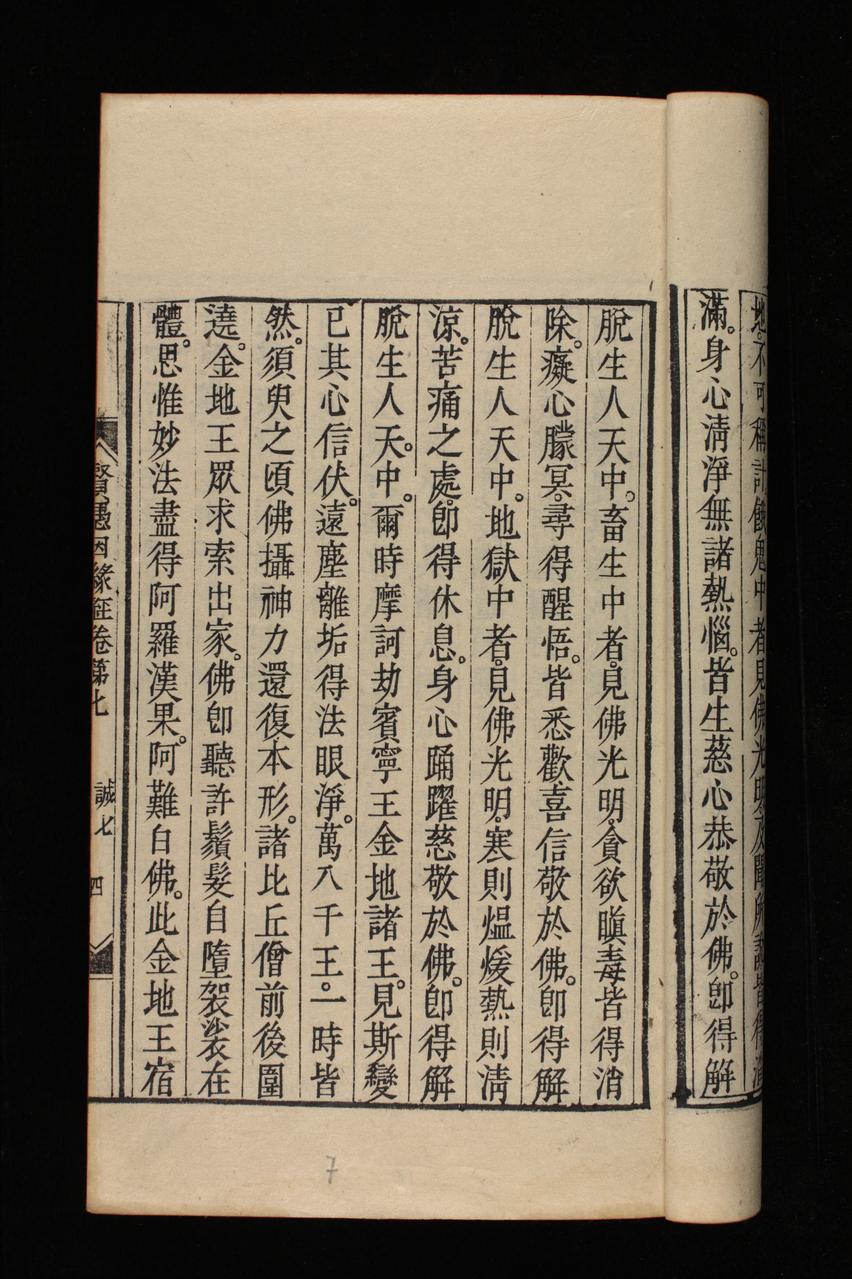 地。不可稱計餓鬼中者見佛光明及聞所說皆得
滿。身心清淨無諸熱惱。皆生慈心恭敬於佛。卽得解
脫生人天中。畜生中者。見佛光明。貪欲瞋毒皆得消
除。癡心朦冥。尋得醒悟。皆悉歡喜信敬於佛。卽得解
脫生人天中。地獄中者。見佛光明。寒則熅煖熱則淸
涼。苦痛之處。卽得休息。身心踊躍慈敬於佛。卽得解
脫生人天。中。爾時摩訶劫賓寧王金地諸王。見斯變
已其心信伏。遠塵離垢得法眼淨。萬八千王。一時皆
然。須臾之頃佛攝神力還復本形。諸比丘僧前後圍
遶。金地王眾求索出家。佛卽聽許鬚髮自墮袈裟在
體。思惟妙法盡得阿羅漢果。阿難白佛。此金地王宿
賢愚因緣經卷第七 誠七 四
7